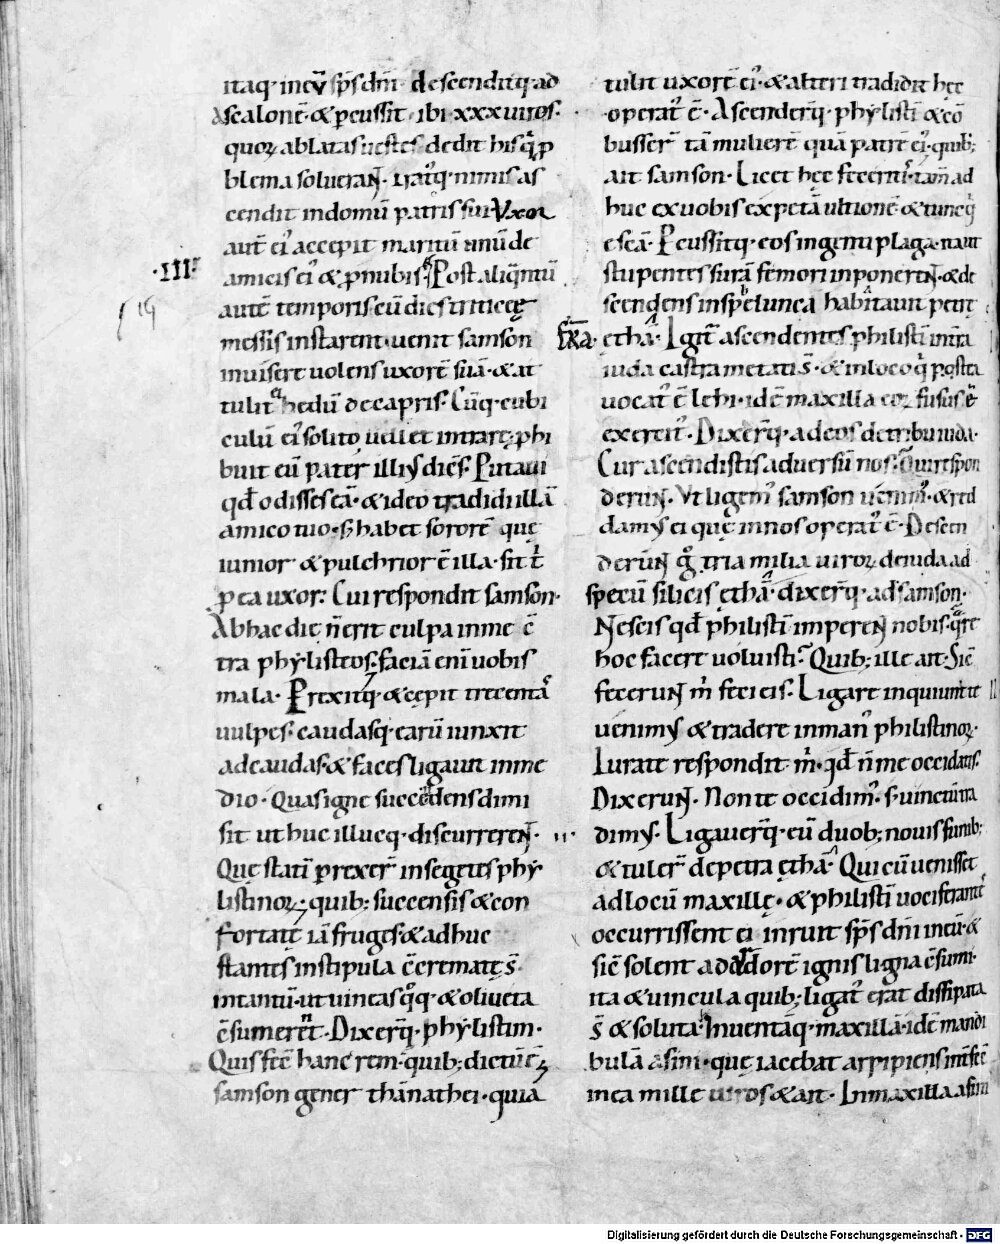 itaq· in eū sp̄s dn̄i· descenditq· ad
Ascalonē· & p̄cussit· ibi· xxx uiros·
quoꝝ ablatas uestes dedit his q̇ p̱
blema soluerant̄· iratꝰq· nimis as
cendit in domū patris sui Vxor
aut̄ eiꝰ accepit maritū unū de
·III· amicis eiꝰ & p̱nubis· Post aliq̄ntū
autē temporis cū dies triticeę
messis instarent· uenit samson
inuisere uolens uxorē suā· & at
tulit ei hedū de capris· Cūq· cubi
culū eiꝰ solito uellet intrare· phi
buit eū pater illiꝰ dicēs· Putaui
qd̄ odisses eā· & ideo tradidi illā
amico tuo· s; habet sororē quę
iunior & pulchrior ē illa· sit t̄
p̱ ea uxor: Cui respondit samson·
Ab hac die n̄ erit culpa in me c̄
tra phylisteos· faciā eni uobis
mala· Prexitq· & cepit trecentaˢ
uulpes· caudasq· earū iunxit
ad caudas· & faces ligauit in me
dio· Quas igne succēdens dimi
sit ut huc illucq· discurrerent̄·
Que statī prexer̄ in segetes phy
listinoꝝ· quib; succensis & con
fortatę iā fruges & adhuc
stantes in stipula c̄crematę s̄·
in tantū· ut uineas q̊q· & oliueta
c̄sumeret· Dixer̄q· phylistim·
Quis fec̄ hanc rem· quib; dictū ē
samson gener thamnathei· quia
tulit uxorē eiꝰ· & alteri tradidit hęc
operatꝰ ē· Ascender̄q· phylistī & cō
busser̄ tā mulierē quā patrē eiꝰ· quib;
ait samson· Licet hęc feceritꝰ· tam̄ ad
huc ex uobis expetā ultionē & tunc q̇
escā· Percussitq· eos ingenti plaga· ita ut
stupentes surā femori inponerent̄· & de
scendens in spelunca habitauit petrę
ethā· Igit̄ ascendentes philistī in t̄ra
iuda castrametati s̄· & in loco q̇ postea
uocatꝰ ē lehi· idē maxilla eoꝝ fusus ē
exercitꝰ· Dixer̄q· ad eos de tribu iuda·
Cur ascendistis aduersū nos· Qui respon
derunt̄· Vt ligemꝰ samson uenimꝰ· & red
damꝰ ei quę in nos operatꝰ ē· Descen
derunt̄ g̊ tria milia uiroꝝ de iuda ad
specū silicis ethā· dixer̄q· ad samson·
Nescis qd̄ philistī imperent̄ nobis· q̄re
hoc facere uoluisti· Quib; ille ait· Sic̄
fecerunt̄ m̄ feci eis· Ligare inquiunt te
uenimꝰ & tradere in manꝰ philistinoꝝ·
Iurate respondit m̄· qd̄ n̄ me occidatis·
Dixerunt̄· Non te occidimꝰ· s; uinctū tra
dimꝰ· Ligauer̄q· eū duob; nouis funib;
& tuler̄ de petra ethā· Qui cū uenisset
ad locū maxillę· & philistī uociferantes
occurrissent ei inruit sp̄s dn̄i in eū· &
sic̄ solent ad odorē ignis ligna c̄sumi·
ita & uincula quib; ligatꝰ erat dissipata
s̄ & soluta· Inuentāq· maxillā· idē mandi
bulā asini· quę iacebat arripiens int̄fec̄
in ea mille uiros & ait· In maxilla asini
Digitalisierung gefördert durch die Deutsche Forschungsgemeinschaft - DFG